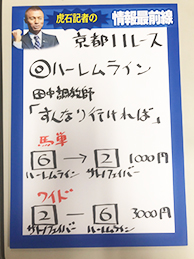 虎石記者の
情報最前線
京都11レース
◎ハーレムライン
田中調教師
「すんなり行ければ」
馬単
6→2 1000円
ハーレムライン サトノフェイバー
ワイド
2－6 3000円
サトノフェイバー ハーレムライン